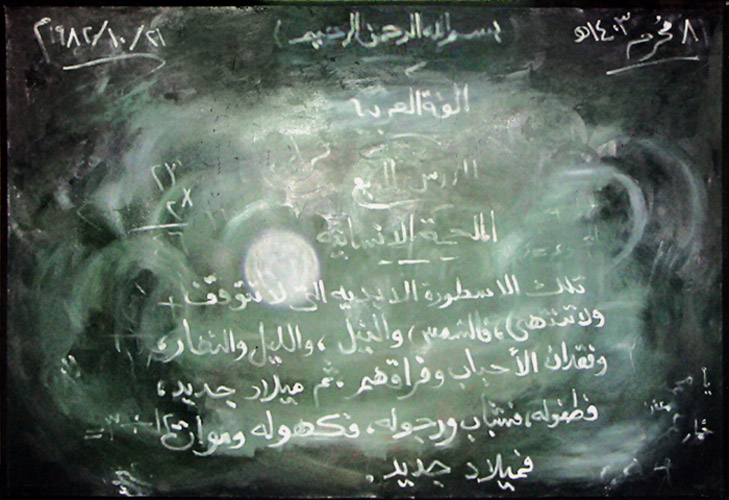 ٨ محرم ١٤٠٣هـ
(بسم الله الرحمن الرحيم)
١٩٨٢/١٠/٢١م
اللغة العربية
الدرس الرابع
الملحمة الانسانية
٢٣
٢٨
تلك الاسطورة الابدية التى لا تتوقف
ولا تنتهى، فالشمس والليل، والليل والنهار،
وفقدان الأحباب وفراقهم، ثم ميلاد جديد،
فطفوله، فشباب ورجوله، فكهوله وموات
فميلاد جديد.